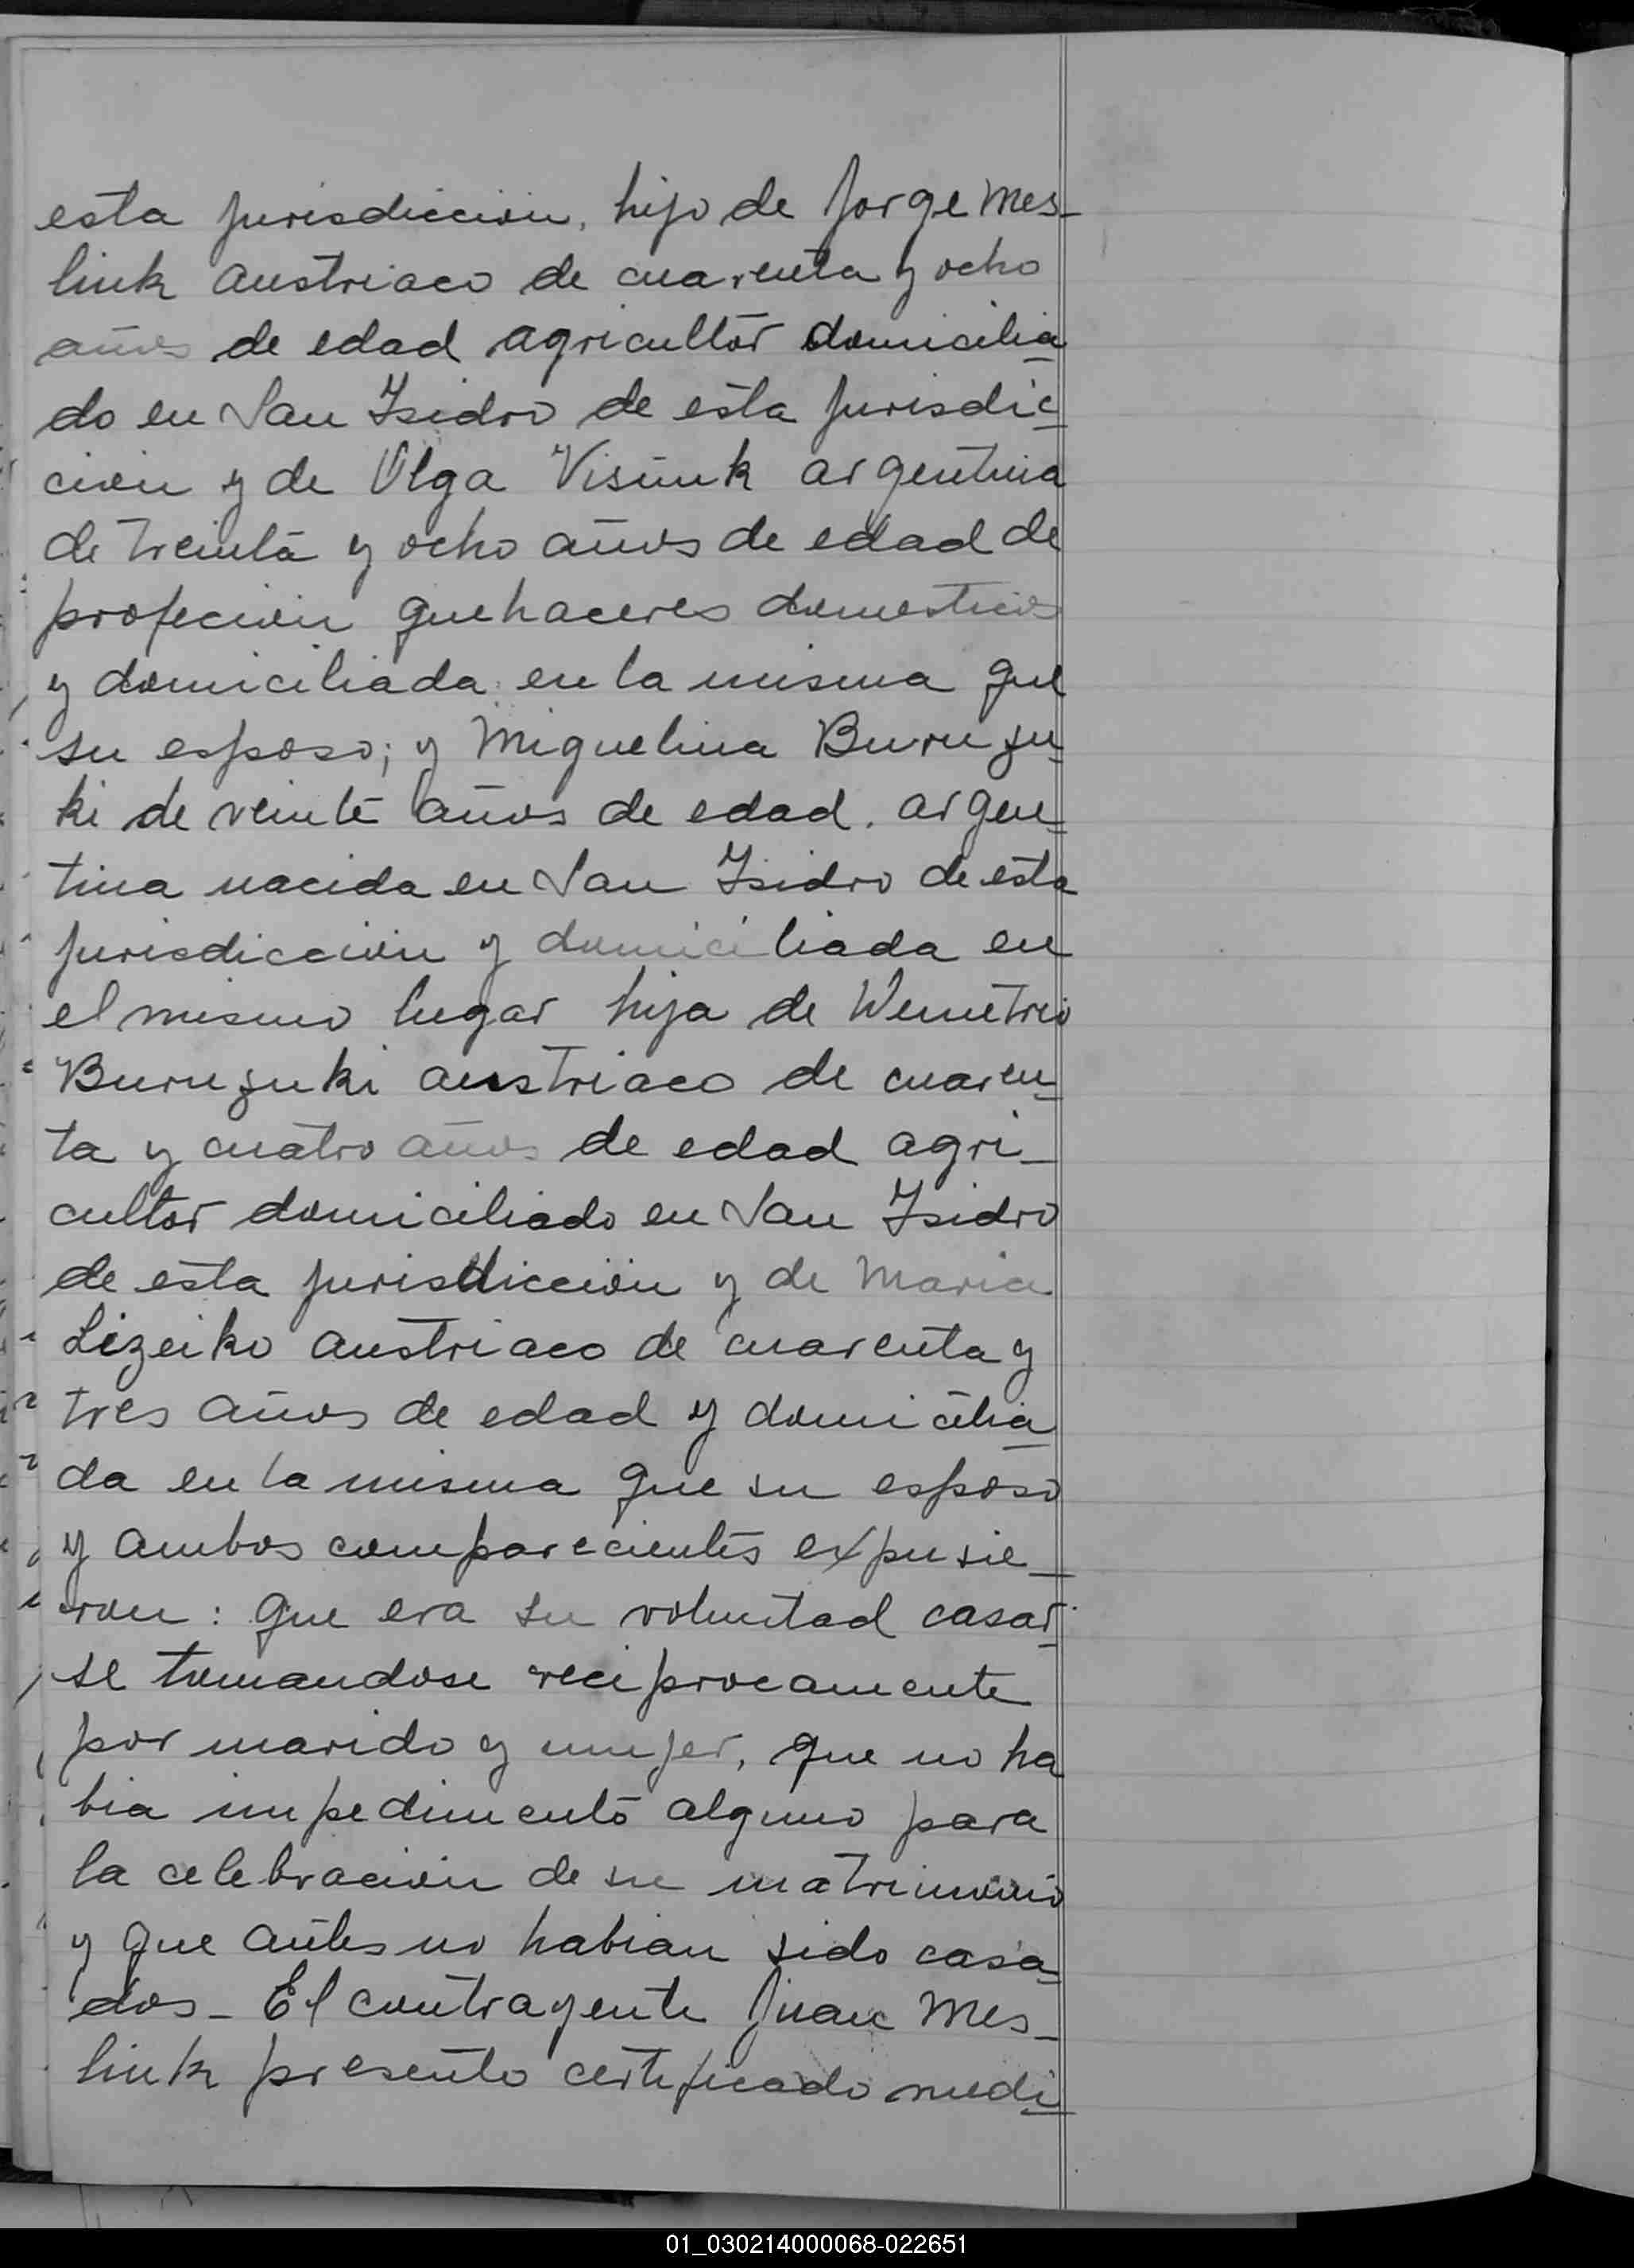 esta jurisdiccion, hijo de Jorge Mes-
link austriaco de cuarenta y ocho
años de edad agricultor domicilia
do en San Isidro de esta jurisdic-
cion y de Olga Visiñuk argentina
de treinta y ocho años de edad de
profecion quehaceres domesticos
y domiciliada en la misma que
su esposo; y Miguelina Buruzu-
ki de veinte años de edad, argen-
tina nacida en San Isidro de esta
jurisdiccion y domiciliada en
el mismo lugar hija de Wemetrio
Buruzuki austriaco de cuaren-
ta y cuatro años de edad agri-
cultor domiciliado en San Isidro
de esta jurisdiccion y de Maria
Lizeiko austriaco de cuarenta y
tres años de edad y domicilia
da en la misma que su esposo
y ambos comparecientes expusie-
ron: que era su voluntad casar-
se tomandose reciprocamente
por marido y mujer, que no ha
bia impedimento alguno para
la celebracion de su matrimonio
y que antes no habian sido casa-
dos- El contrayente Juan Mes-
link presento certificado medi-
01_030214000068-022651